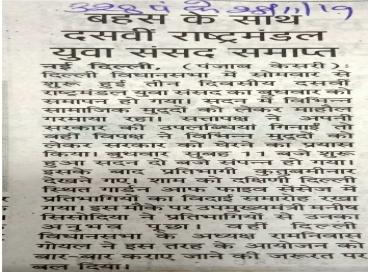 28/11/19
बहस के साथ
दसवीं राष्ट्रमंडल
युवा संसद समाप्त
नई दिल्ली, (पंजाब केसरी):
दिल्ली विधानसभा में सोमवार से
शुरू हुई तीन दिवसीय दसवीं
राष्ट्रमंडल युवा संसद का बुधवार को
समापन हो गया। सदन में विभिन्न
सामाजिक मुद्दों को लेकर माहौल
गरमाया रहा। सत्तापक्ष ने अपनी
सरकार की उपलब्धियां गिनाईं तो
वहीं विपक्ष ने विभिन्न मुद्दों को
लेकर सरकार को घेरने का प्रयास
किया। बुधवार सुबह 11 बजे शुरू
हुआ सदन दो बजे संपन हो गया।
इसके बाद प्रतिभागी कुतुबमीनार
देखने गए। शाम को दक्षिणी दिल्ली
स्थित गार्डन ऑफ फाइव सेंसेज में
प्रतिभागियों का विदाई समारोह रखा
गया। इस मौके पर उपमुख्यमंत्री मनीष
सिसोदिया ने प्रतिभागियों से उनका
अनुभव पूछा। वहीं दिल्ली
विधानसभा के अध्यक्ष रामनिवास
गोयल ने इस तरह के आयोजन को
बार-बार कराए जाने की जरूरत पर
बल दिया।